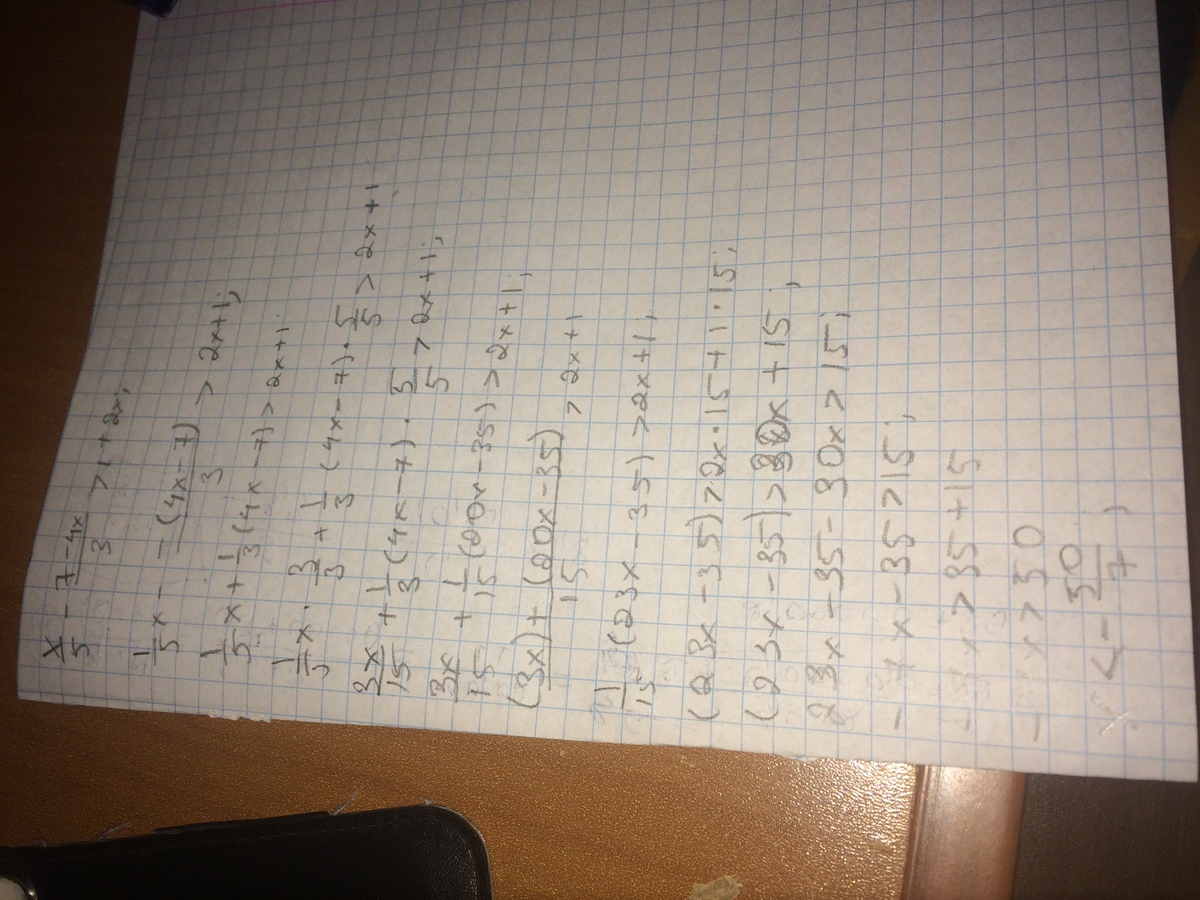 x/5 - 7-4x/3 > 1+2x;
1/5 x - -(4x-7)/3 > 2x+1;
1/5 x + 1/3 (4x-7) > 2x+1.
1/5 x · 3/3 + 1/3 (4x-7) · 5/5 > 2x+1
3x/15 + 1/3 (4x-7) · 5/5 > 2x+1;
3x/15 + 1/15 (20x-35) > 2x+1;
(3x)+(20x-35)/15 > 2x+1
1/15 (23x-35) > 2x+1;
(23x-35) > 2x·15+1·15;
(23x-35) > 30x+15;
23x-35-30x > 15;
-7x-35 > 15;
-7x > 35+15
-7x > 50
x < -50/7;